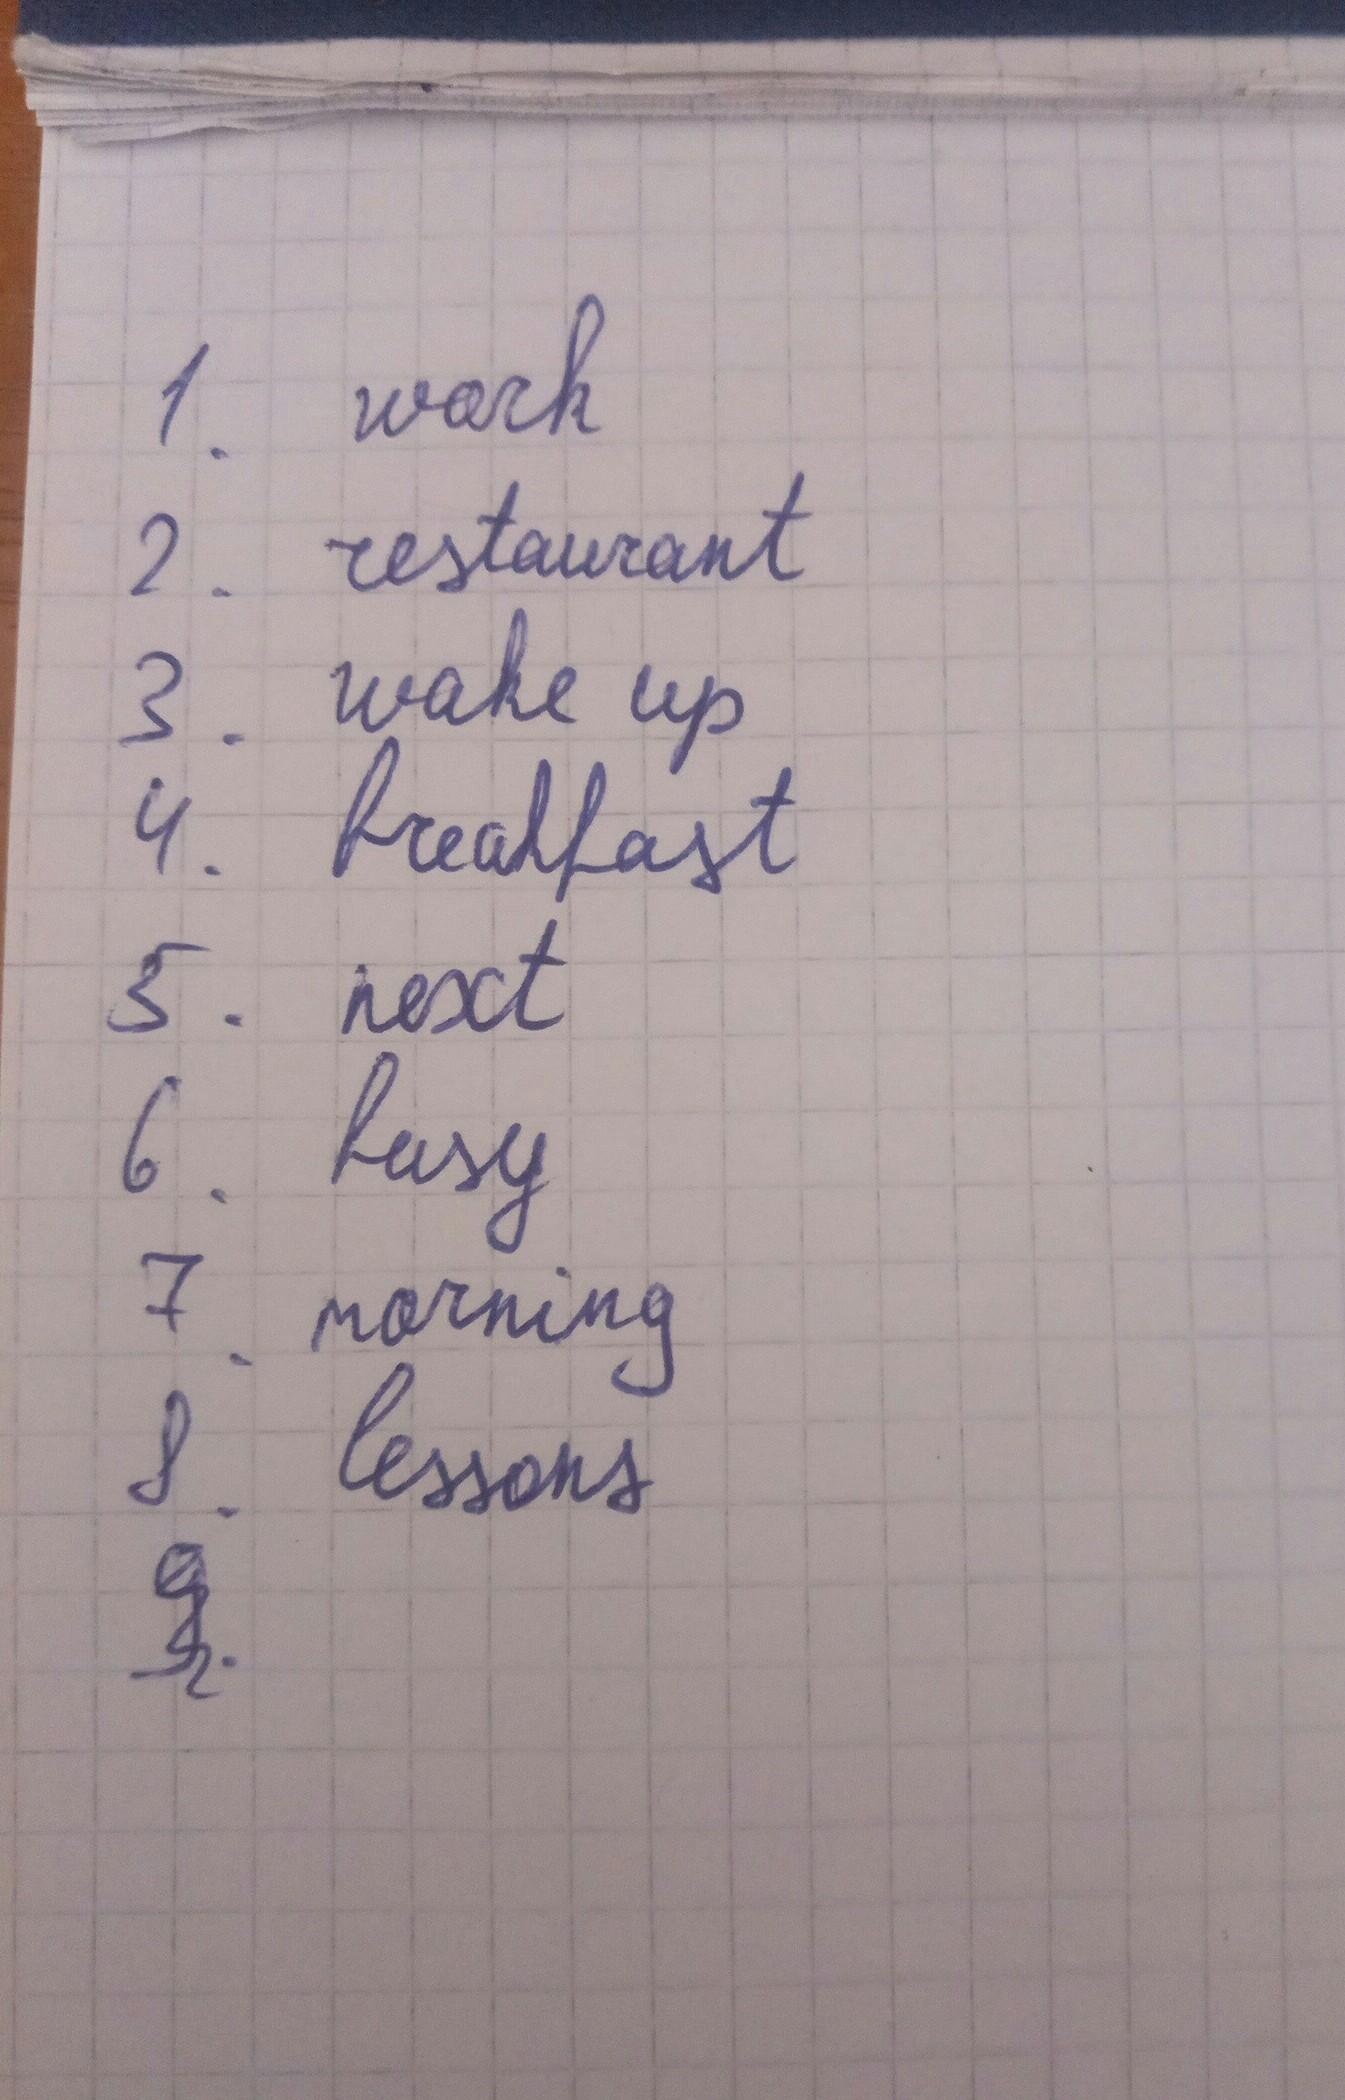 1. work
2. restaurant
3. wake up
4. breakfast
5. next
6. busy
7. morning
8. lessons